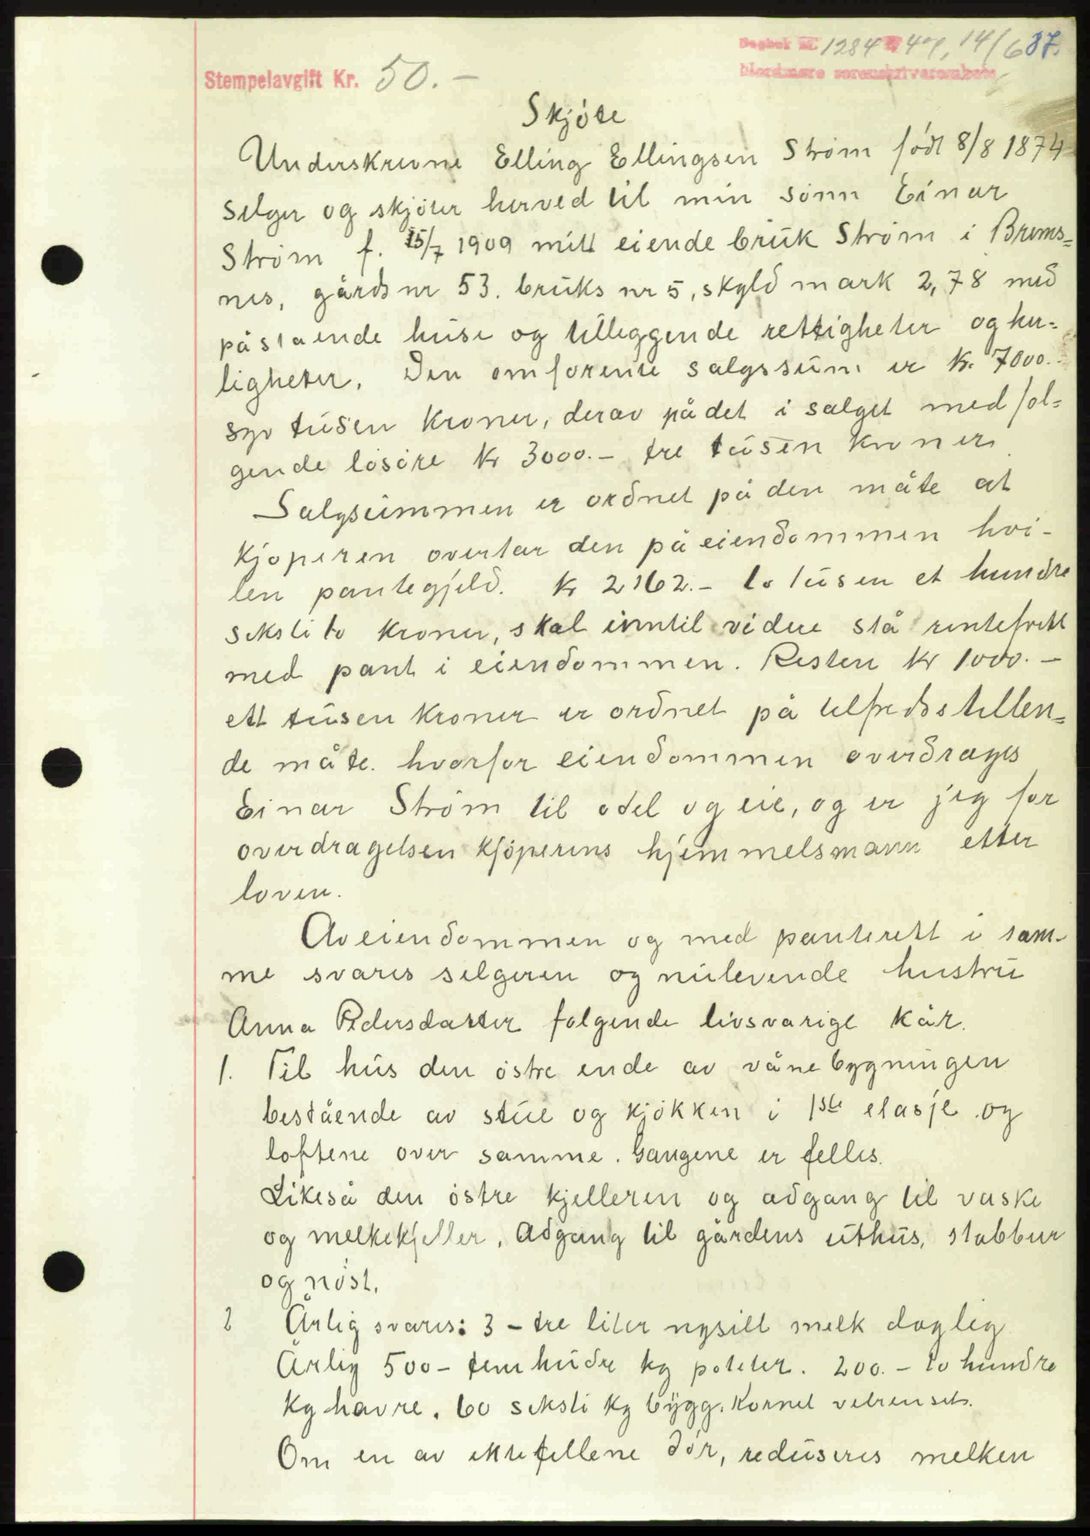 Dagbok nr. 1284 47, 14/6 37.
Stempelavgift Kr. 50.-
Nordmøre sorenskriverembete
Skjöte
Underskrevne Elling Ellingsen Strøm født 8/8 1874
selger og skjöter herved til min sönn Einar
Strøm f. 15/7 1909 mitt eiende bruk Strøm i Brems=
nes, gårds nr 53. bruks nr 5, skyld mark 2,78 med
påstående huse og tilleggende rettigheter og her=
ligheter. Den omforenie salgssum er kr. 7000.-
syv tusen kroner, derav på det i salget medføl=
gende lösöre kr 3000.- tre tusen kroner.
Salgsummen er ordnet på den måte at
kjöperen overtar den på eiendommen hvi-
len pantegjeld. kr 2162.- to tusen et hundre
seksti to kroner, skal inntil videre stå rentefritt
med pant i eiendommen. Resten kr 1000.-
ett tusen kroner er ordnet på tilfredsstillen=
de måte. hvorfor eiendommen overdrages
Einar Strøm til odel og eie, og er jeg for
overdragelsen kjöperens hjemmelsmann etter
loven.
Av eiendommen og med panterett i sam-
me svares selgeren og nulevende hustru
Anna Pedersdatter følgende livsvarige kår.
1. Til hus den östre ende av vånebygningen
bestående av stue og kjökken i 1ste etasje og
loftene over samme. Gangene er felles.
Likeså den östre kjelleren og adgang til vaske
og melkekjeller, Adgang til gårdens uthus, stabbur
og nöst.
2 Årlig svares: 3 - tre liter nysilt melk daglig
Årlig 500- fem hudre kg poteter. 200.- to hundre
kg havre. 60 seksti kg bygg. Kornet velrenset.
Om en av ektefellene dör, reduseres melken